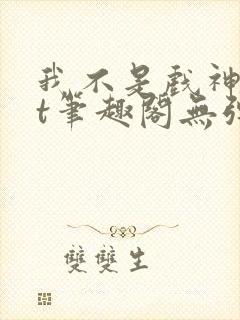 我不是戲神
t筆趣閣無弹
雙雙生